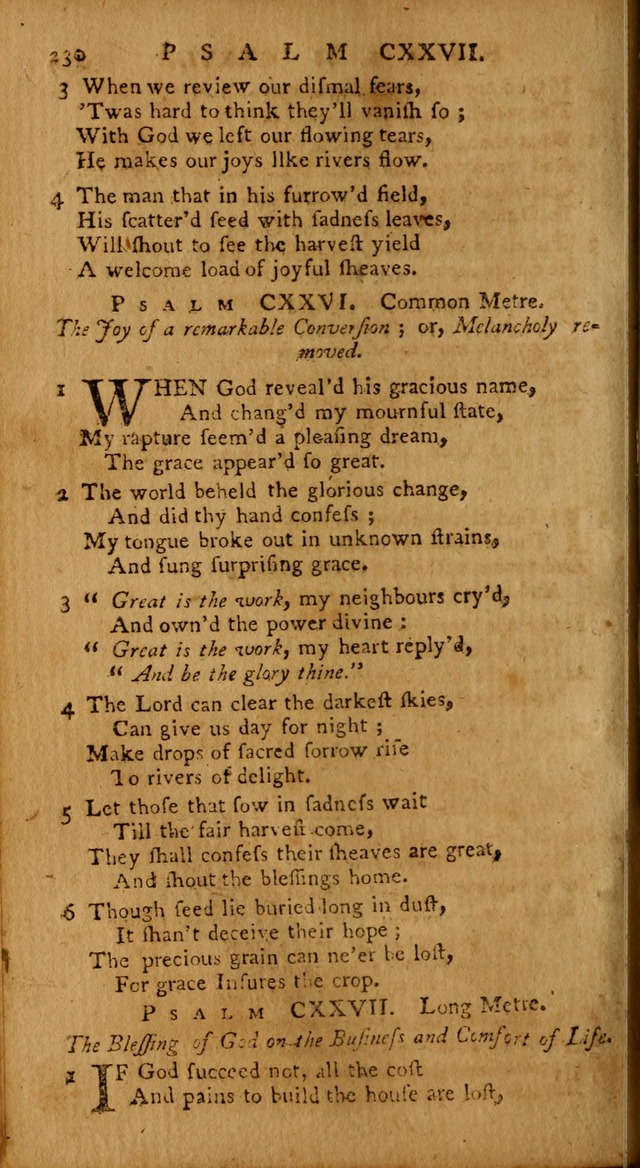 230 PSALM CXXVII.
3 When we review our diſmal fears,
'Twas hard to think they'll vaniſh ſo ;
With God we left our flowing tears,
He makes our joys lIke rivers flow.
4 The man that in his furrow'd field,
His ſcatter'd ſeed with ſadneſs leaves,
Will ſhout to ſee the harveſt yield
A welcome load of joyful ſheaves.
PSALM CXXVI. Common Metre.
The Joy of a remarkable Converſion ; or, Melancholy re-
moved.
1 WHEN God reveal'd his gracious name,
And chang'd my mournful ſtate,
My rapture ſeem'd a pleaſing dream,
The grace appear'd ſo great.
2 The world beheld the glorious change,
And did thy hand confeſs ;
My tongue broke out in unknown ſtrains,
And ſung ſurpriſing grace.
3 “ Great is the work, my neighbours cry'd,
And own'd the power divine :
“ Great is the work, my heart reply'd,
“ And be the glory thine.”
4 The Lord can clear the darkeſt ſkies,
Can give us day for night ;
Make drops of ſacred ſorrow riſe
To rivers of delight.
5 Let thoſe that ſow in ſadneſs wait
Till the fair harveſt come,
They ſhall confeſs their ſheaves are great,
And ſhout the bleſſings home.
6 Though ſeed lie buried long in duſt,
It ſhan't deceive their hope ;
The precious grain can ne'er be loſt,
For grace Inſures the crop.
PSALM CXXVII. Long Metre.
The Bleſſing of God on the Buſineſs and Comfort of Life.
1 IF God ſucceed not, all the coſt
And pains to build the houſe are loſt,